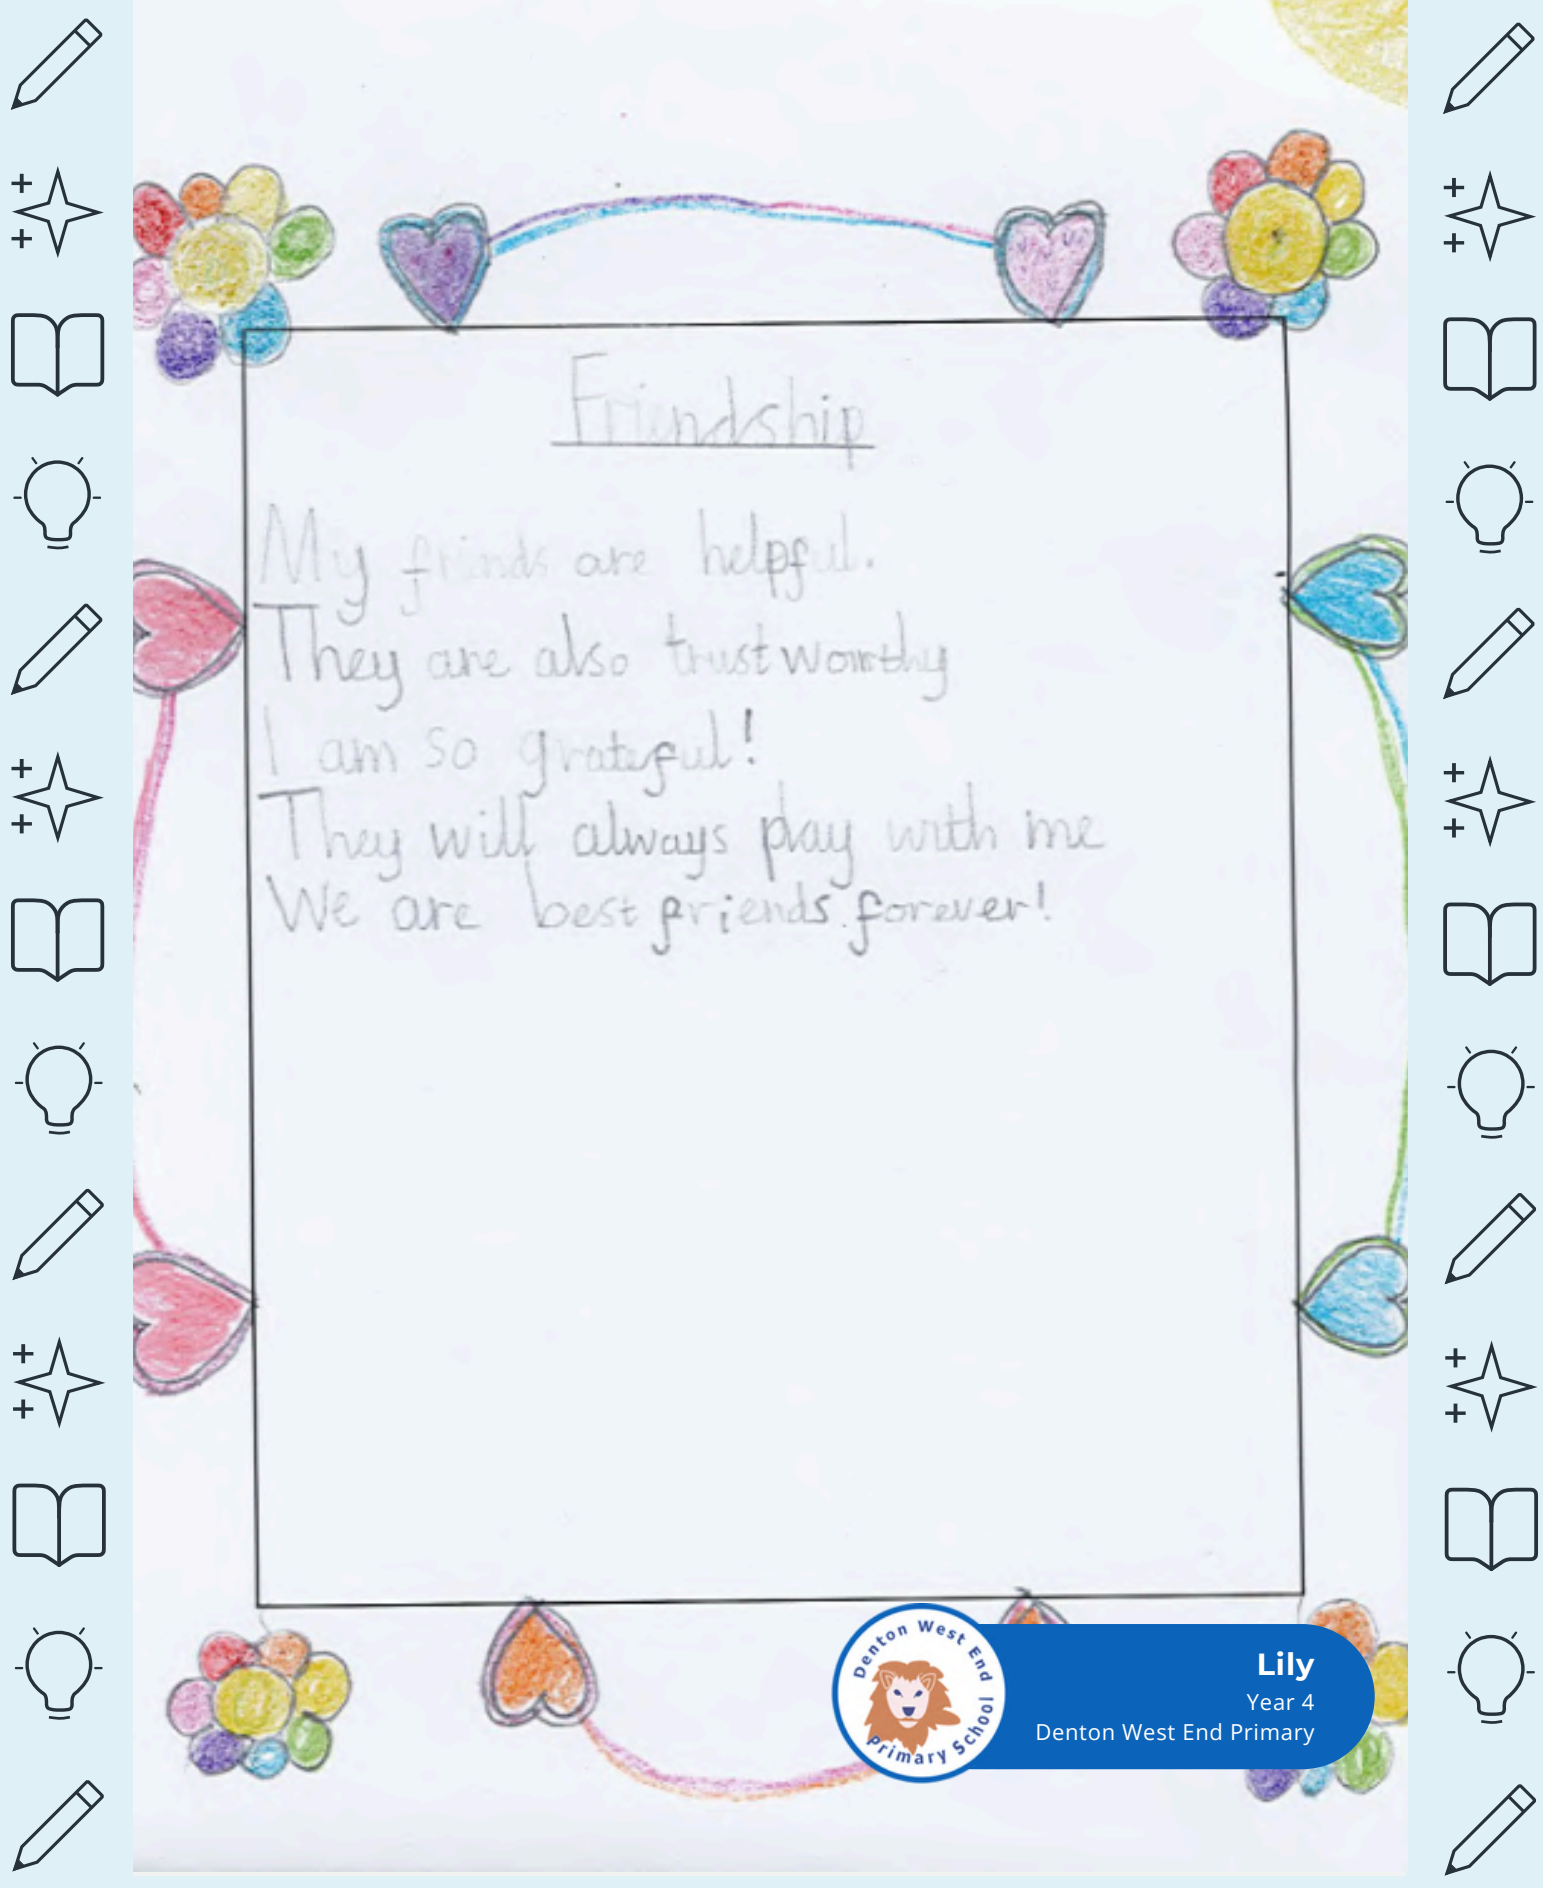 Friendship
My friends are helpful.
They are also trustworthy
I am so grateful!
They will always play with me
We are best friends forever!
Denton West End Primary School
Lily
Year 4
Denton West End Primary